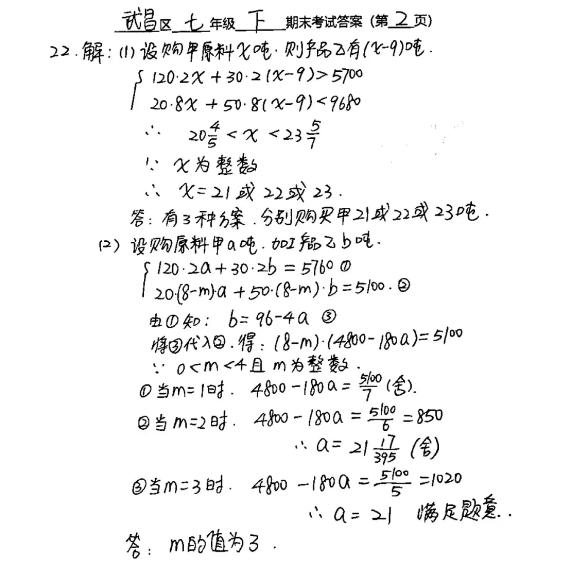 武昌区 七 年级 下 期末考试答案（第 2 页）
22.解：(1)设购甲原料x吨，则产品乙有(x-9)吨.
{120·2x+30·2(x-9)>5700
20·8x+50·8(x-9)<9680
∴ 20 4/5 < x < 23 5/7
∵ x为整数
∴ x=21或22或23.
答：有3种方案，分别购买甲21或22或23吨.
(2)设购原料甲a吨，加工产品乙b吨.
{120·2a+30·2b=5760 ①
20·(8-m)·a+50·(8-m)·b=5100.②
由①知：b=96-4a ③
将③代入②，得：(8-m)·(4800-180a)=5100
∵ 0<m<4且m为整数.
①当m=1时. 4800-180a=5100/7 (舍).
②当m=2时. 4800-180a=5100/6=850
∴ a=21 17/395 (舍)
③当m=3时. 4800-180a=5100/5=1020
∴ a=21 满足题意.
答：m的值为3.